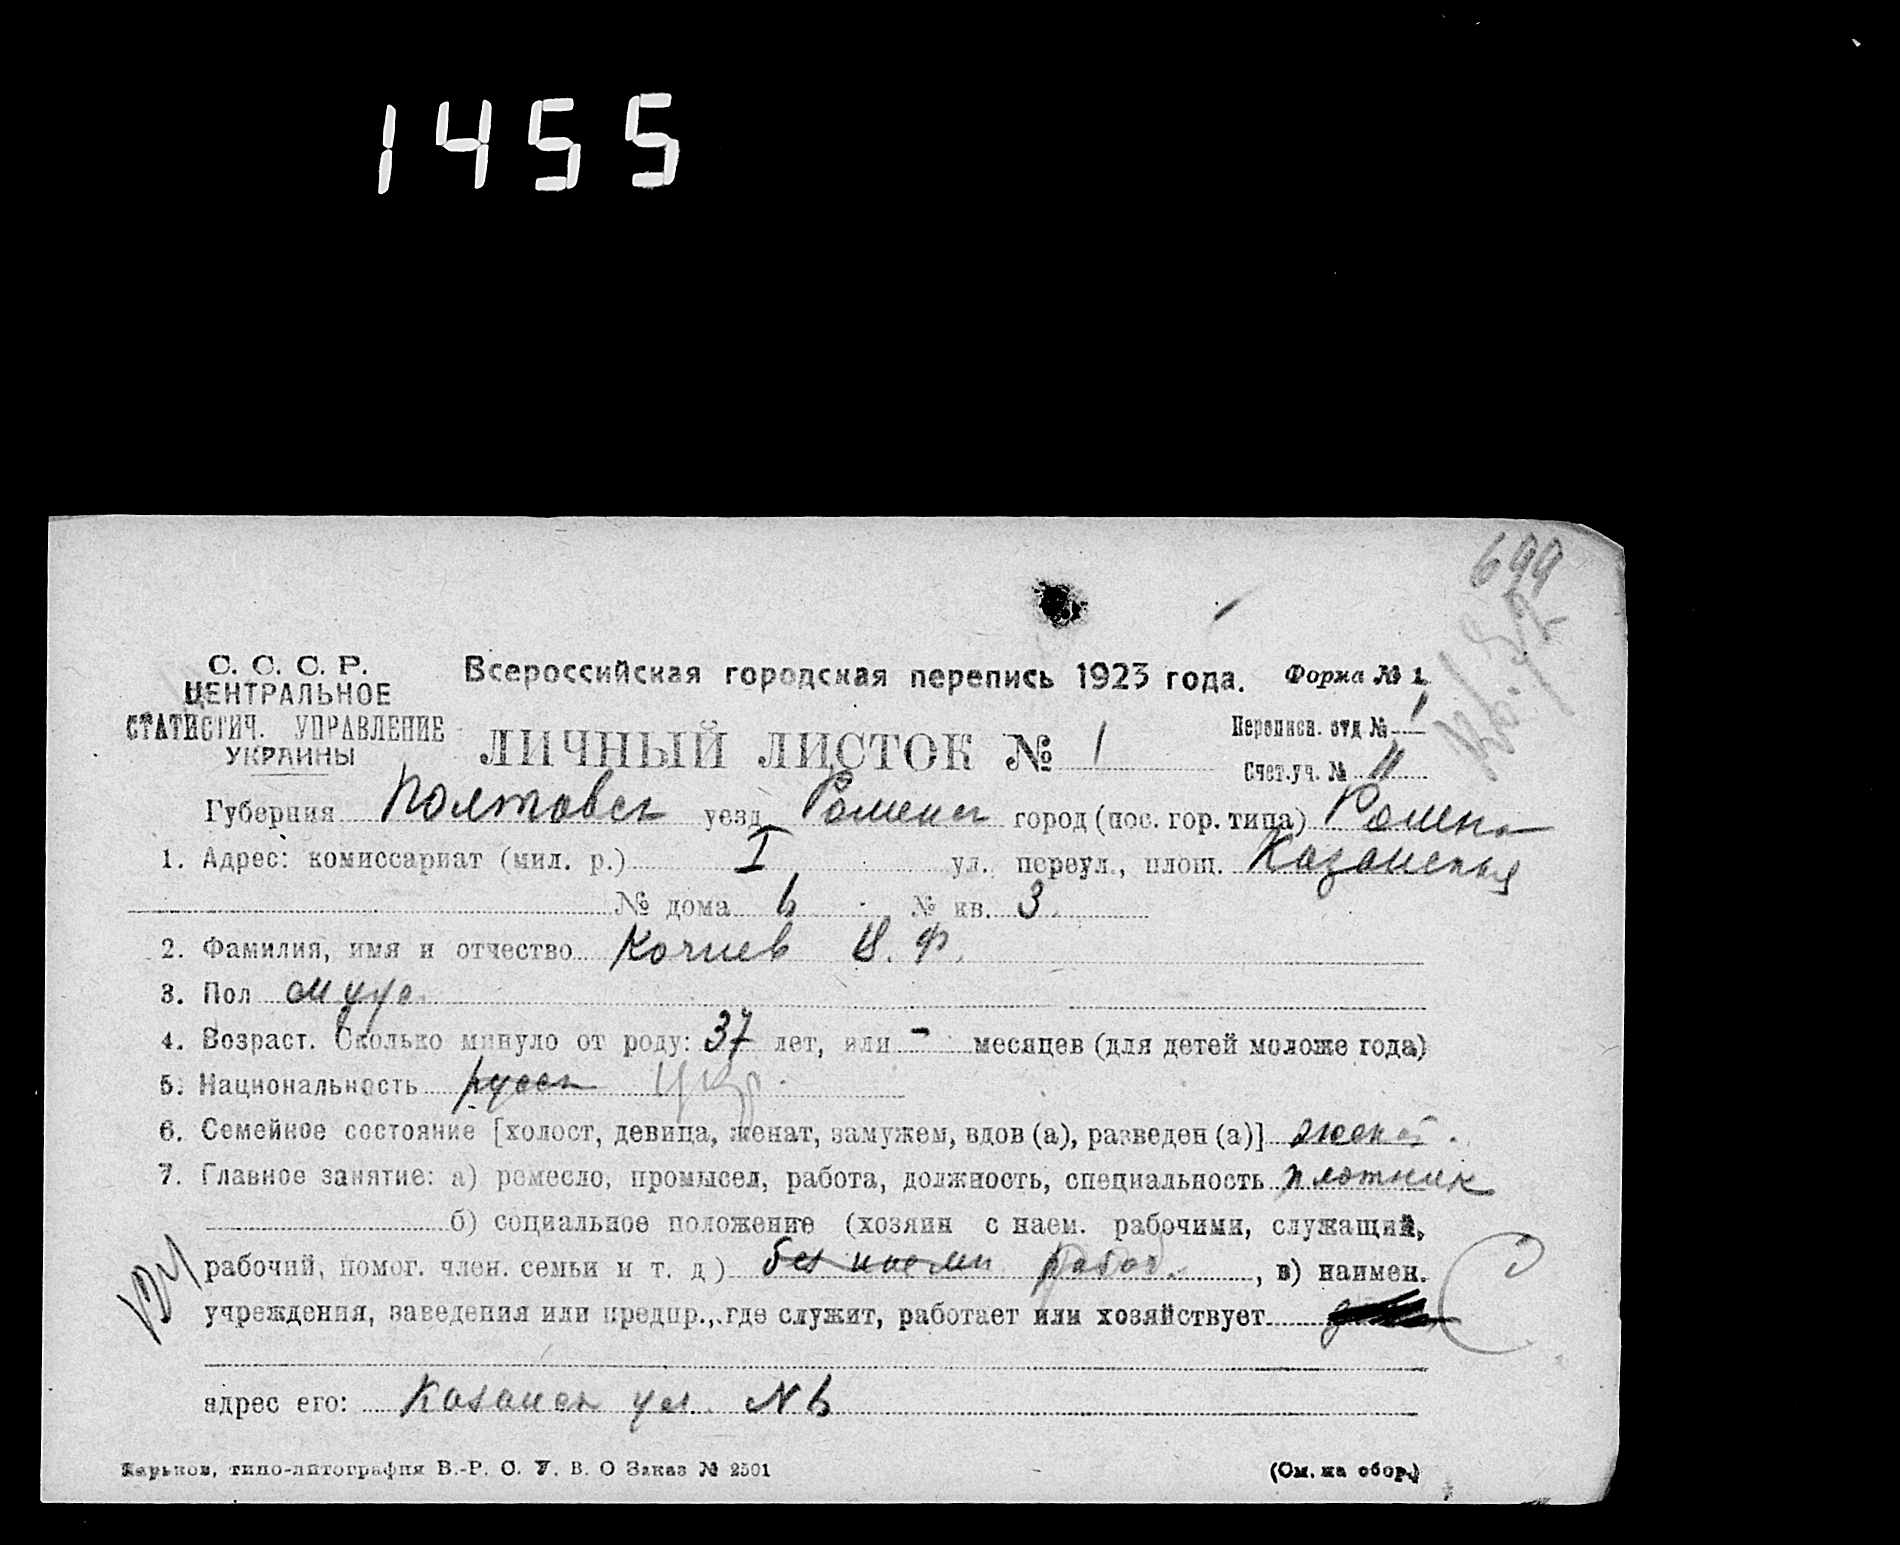 1455
699
С. С. С. Р.
ЦЕНТРАЛЬНОЕ
СТАТИСТИЧ. УПРАВЛЕНИЕ
УКРАИНЫ
Всероссийская городская перепись 1923 года. Форма № 1.
ЛИЧНЫЙ ЛИСТОК № 1
Переписн. отд. № 1
Счет. уч. № 11
Губерния Полтавск уезд Роменск город (пос. гор. типа) Ромены
1. Адрес: комиссариат (мил. р.) I ул., переул., площ. Казанская
№ дома 6 № кв. 3
2. Фамилия, имя и отчество Ф.
3. Пол муж.
4. Возраст. Сколько минуло от роду: 37 лет, или - месяцев (для детей моложе года)
5. Национальность русск укр.
6. Семейное состояние [холост, девица, женат, замужем, вдов (а), разведен (а)] женат.
7. Главное занятие: а) ремесло, промысел, работа, должность, специальность плотник
б) социальное положение (хозяин с наем. рабочими, служащий,
рабочий, помог. член. семьи и т. д) без наемн рабоч. , в) наимен.
учреждения, заведения или предпр., где служит, работает или хозяйствует
адрес его: Казанск ул. № 6
Харьков, типо-литография В.-Р. С. У. В. О Заказ № 2501 (См. на обор.)